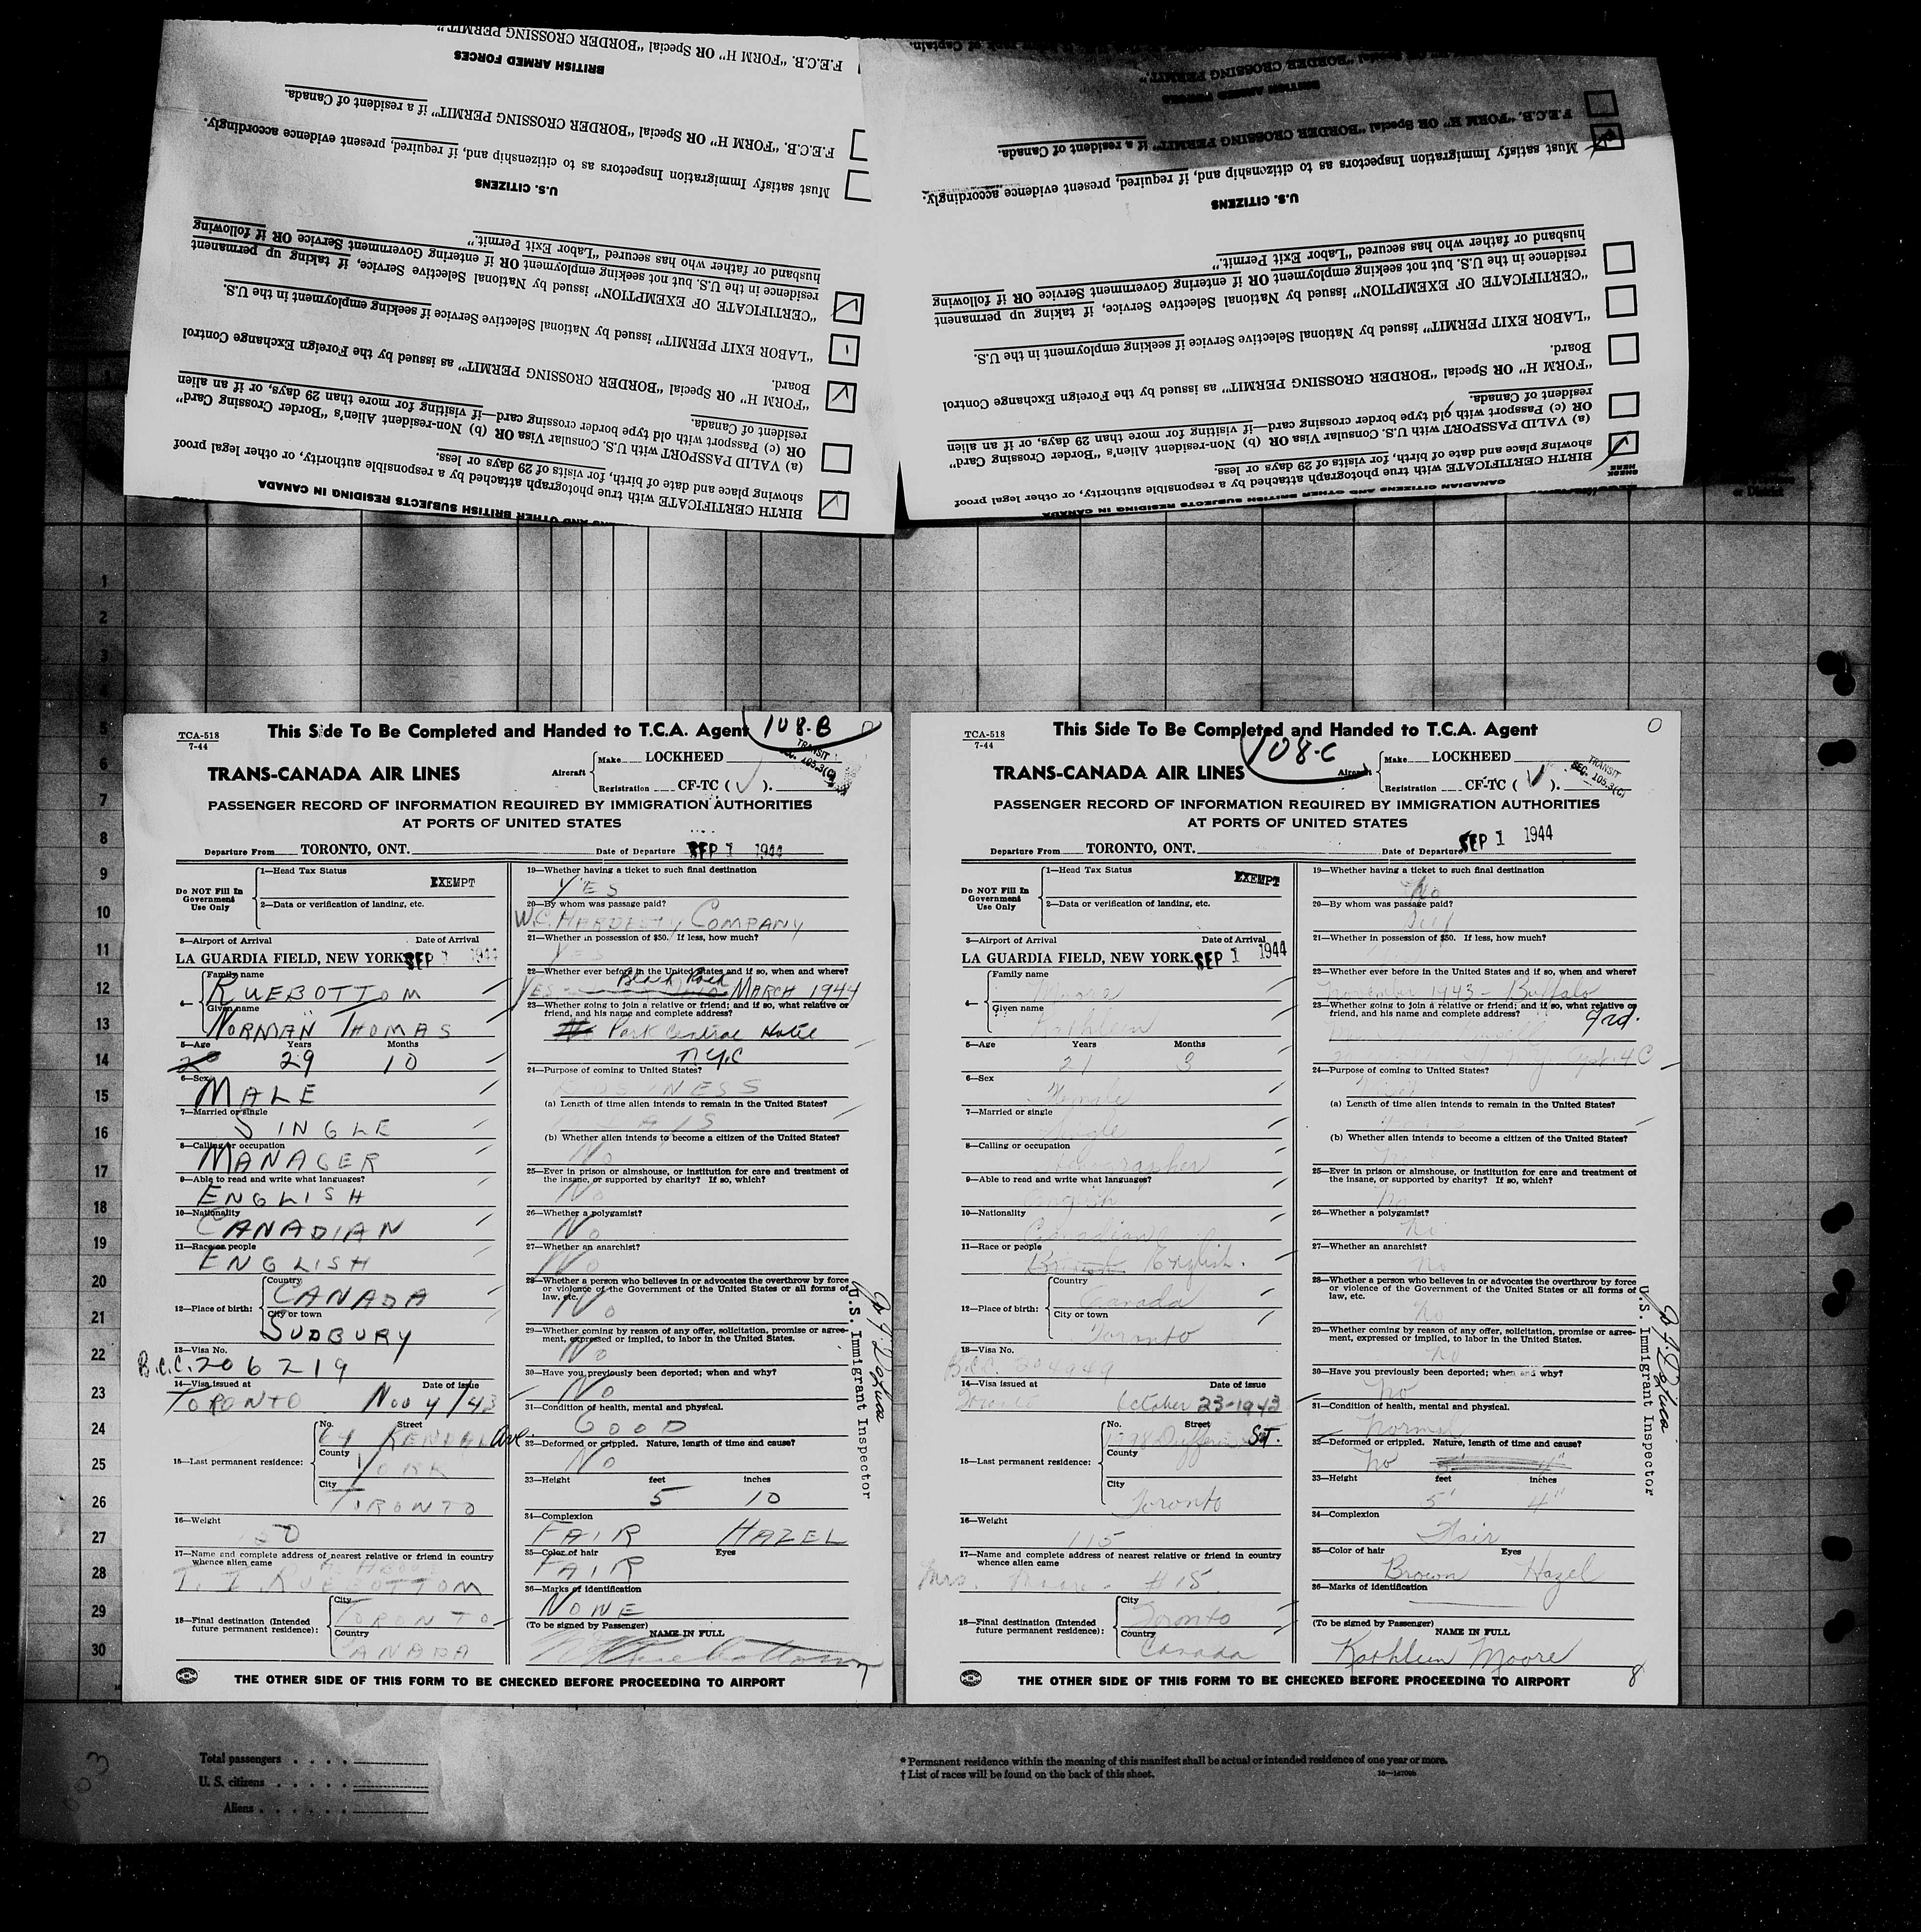 F.E.C.B. "FORM H" OR Special "BORDER CROSSING PERMIT"
BRITISH ARMED FORCES
F.E.C.B. "FORM H" OR Special "BORDER CROSSING PERMIT" if a resident of Canada.
Must satisfy Immigration Inspectors as to citizenship and, if required, present evidence accordingly.
U.S. CITIZENS
husband or father who has secured "Labor Exit Permit."
residence in the U.S. but not seeking employment OR if entering Government Service OR if following
"CERTIFICATE OF EXEMPTION" issued by National Selective Service, if taking up permanent
"LABOR EXIT PERMIT" issued by National Selective Service if seeking employment in the U.S.
Board.
"FORM H" OR Special "BORDER CROSSING PERMIT" as issued by the Foreign Exchange Control
resident of Canada.
OR (c) Passport with old type border crossing card—if visiting for more than 29 days, or if an alien
(a) VALID PASSPORT with U.S. Consular Visa OR (b) Non-resident Alien's "Border Crossing Card"
showing place and date of birth, for visits of 29 days or less.
BIRTH CERTIFICATE with true photograph attached by a responsible authority, or other legal proof
AND OTHER BRITISH SUBJECTS RESIDING IN CANADA
of Captain.
"BORDER CROSSING PERMIT."
BRITISH ARMED FORCES
F.E.C.B. "FORM H" OR Special "BORDER CROSSING PERMIT" if a resident of Canada.
Must satisfy Immigration Inspectors as to citizenship and, if required, present evidence accordingly.
U.S. CITIZENS
husband or father who has secured "Labor Exit Permit."
residence in the U.S. but not seeking employment OR if entering Government Service OR if following
"CERTIFICATE OF EXEMPTION" issued by National Selective Service, if taking up permanent
"LABOR EXIT PERMIT" issued by National Selective Service if seeking employment in the U.S.
Board.
"FORM H" OR Special "BORDER CROSSING PERMIT" as issued by the Foreign Exchange Control
resident of Canada.
OR (c) Passport with old type border crossing card—if visiting for more than 29 days, or if an alien
(a) VALID PASSPORT with U.S. Consular Visa OR (b) Non-resident Alien's "Border Crossing Card"
showing place and date of birth, for visits of 29 days or less.
BIRTH CERTIFICATE with true photograph attached by a responsible authority, or other legal proof
CHECK HERE
CANADIAN CITIZENS AND OTHER BRITISH SUBJECTS RESIDING IN CANADA
or District
1
2
3
4
5
6
7
8
9
10
11
12
13
14
15
16
17
18
19
20
21
22
23
24
25
26
27
28
29
30
TCA-518
7-44
This Side To Be Completed and Handed to T.C.A. Agent
108-B
TRANSIT
SEC. 105.3(C)
TRANS-CANADA AIR LINES
Aircraft
Make LOCKHEED
Registration CF-TC ( ✓ ).
PASSENGER RECORD OF INFORMATION REQUIRED BY IMMIGRATION AUTHORITIES
AT PORTS OF UNITED STATES
Departure From TORONTO, ONT. Date of Departure SEP 1 1944
Do NOT Fill In Government Use Only
1—Head Tax Status EXEMPT
2—Data or verification of landing, etc.
3—Airport of Arrival Date of Arrival
LA GUARDIA FIELD, NEW YORK. SEP 1 1944
4— Family name
RUEBOTTOM
Given name
NORMAN THOMAS
5—Age Years Months
29 10
6—Sex
MALE
7—Married or single
SINGLE
8—Calling or occupation
MANAGER
9—Able to read and write what languages?
ENGLISH
10—Nationality
CANADIAN
11—Race or people
ENGLISH
12—Place of birth:
Country
CANADA
City or town
SUDBURY
13—Visa No.
B.C.C. 206219
14—Visa issued at Date of issue
TORONTO Nov 4/43
15—Last permanent residence:
No. Street
64 KENDAL Ave.
County
YORK
City
TORONTO
16—Weight
17—Name and complete address of nearest relative or friend in country
whence alien came
RUEBOTTOM
18—Final destination (Intended
future permanent residence):
City
TORONTO
Country
CANADA
19—Whether having a ticket to such final destination
YES
20—By whom was passage paid?
W.C. HARDESTY COMPANY
21—Whether in possession of $50. If less, how much?
YES
22—Whether ever before in the United States and if so, when and where?
YES Black Rock MARCH 1944
23—Whether going to join a relative or friend; and if so, what relative or
friend, and his name and complete address?
Park Central Hotel
N.Y.C
24—Purpose of coming to United States?
BUSINESS
(a) Length of time alien intends to remain in the United States?
(b) Whether alien intends to become a citizen of the United States?
No
25—Ever in prison or almshouse, or institution for care and treatment of
the insane, or supported by charity? If so, which?
No
26—Whether a polygamist?
No
27—Whether an anarchist?
No
28—Whether a person who believes in or advocates the overthrow by force
or violence of the Government of the United States or all forms of
law, etc.
No
29—Whether coming by reason of any offer, solicitation, promise or agree-
ment, expressed or implied, to labor in the United States.
No
30—Have you previously been deported; when and why?
No
31—Condition of health, mental and physical.
GOOD
32—Deformed or crippled. Nature, length of time and cause?
No
33—Height feet inches
5 10
34—Complexion
FAIR HAZEL
35—Color of hair Eyes
FAIR
36—Marks of identification
NONE
(To be signed by Passenger)
NAME IN FULL
U.S. Immigrant Inspector
THE OTHER SIDE OF THIS FORM TO BE CHECKED BEFORE PROCEEDING TO AIRPORT
TCA-518
7-44
This Side To Be Completed and Handed to T.C.A. Agent
108-C
TRANSIT
SEC. 105.3(C)
TRANS-CANADA AIR LINES
Aircraft
Make LOCKHEED
Registration CF-TC ( ✓ ).
PASSENGER RECORD OF INFORMATION REQUIRED BY IMMIGRATION AUTHORITIES
AT PORTS OF UNITED STATES
Departure From TORONTO, ONT. Date of Departure SEP 1 1944
Do NOT Fill In Government Use Only
1—Head Tax Status EXEMPT
2—Data or verification of landing, etc.
3—Airport of Arrival Date of Arrival
LA GUARDIA FIELD, NEW YORK. SEP 1 1944
4— Family name
Moore
Given name
Kathleen
5—Age Years Months
21 3
6—Sex
Female
7—Married or single
Single
8—Calling or occupation
Stenographer
9—Able to read and write what languages?
English
10—Nationality
Canadian
11—Race or people
English.
12—Place of birth:
Country
Canada
City or town
Toronto
13—Visa No.
B.C.C. 204949
14—Visa issued at Date of issue
Toronto October 23-1943
15—Last permanent residence:
No. Street
Dufferin ST.
County
City
Toronto
16—Weight
115
17—Name and complete address of nearest relative or friend in country
whence alien came
Mrs. Moore - #15.
18—Final destination (Intended
future permanent residence):
City
Toronto
Country
Canada
19—Whether having a ticket to such final destination
No
20—By whom was passage paid?
Self
21—Whether in possession of $50. If less, how much?
22—Whether ever before in the United States and if so, when and where?
November 1943 - Buffalo
23—Whether going to join a relative or friend; and if so, what relative or
friend, and his name and complete address?
frd.
Apt. 4C
24—Purpose of coming to United States?
(a) Length of time alien intends to remain in the United States?
(b) Whether alien intends to become a citizen of the United States?
No
25—Ever in prison or almshouse, or institution for care and treatment of
the insane, or supported by charity? If so, which?
No
26—Whether a polygamist?
No
27—Whether an anarchist?
No
28—Whether a person who believes in or advocates the overthrow by force
or violence of the Government of the United States or all forms of
law, etc.
No
29—Whether coming by reason of any offer, solicitation, promise or agree-
ment, expressed or implied, to labor in the United States.
No
30—Have you previously been deported; when and why?
No
31—Condition of health, mental and physical.
Normal
32—Deformed or crippled. Nature, length of time and cause?
No
33—Height feet inches
5' 4"
34—Complexion
Fair
35—Color of hair Eyes
Brown Hazel
36—Marks of identification
(To be signed by Passenger)
NAME IN FULL
Kathleen Moore
8
U.S. Immigrant Inspector
THE OTHER SIDE OF THIS FORM TO BE CHECKED BEFORE PROCEEDING TO AIRPORT
Total passengers
U. S. citizens
Aliens
* Permanent residence within the meaning of this manifest shall be actual or intended residence of one year or more.
† List of races will be found on the back of this sheet.